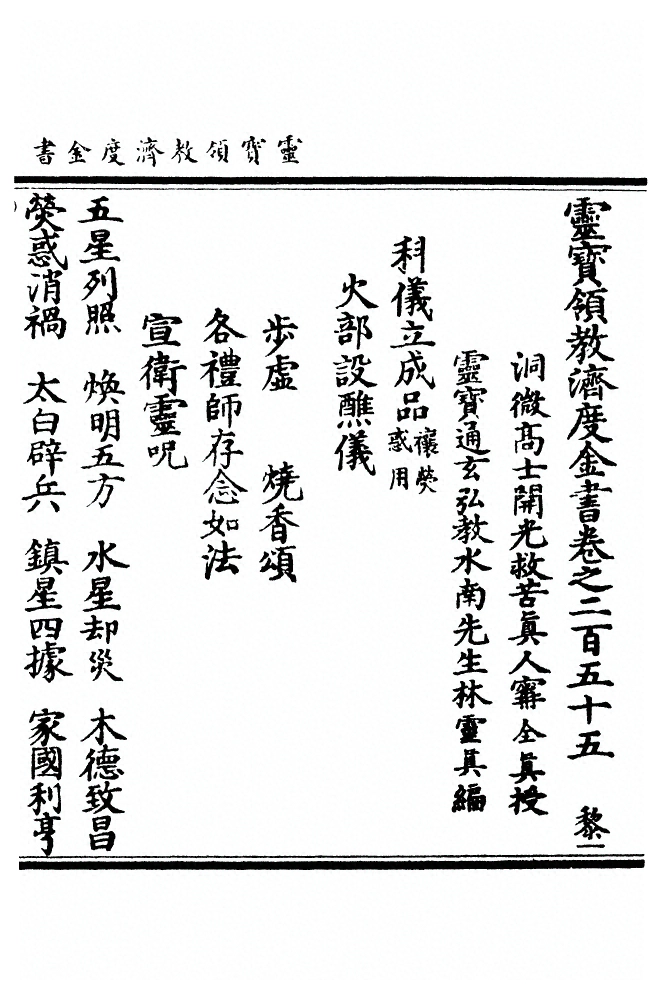 靈寶領教濟度金書
靈寶領教濟度金書卷之二百五十五 黎一
洞微高士開光救苦眞人甯全眞授
靈寶通玄弘教水南先生林靈眞編
科儀立成品禳熒惑用
火部設醮儀
步虛 燒香頌
各禮師存念如法
宣衛靈呪
五星列照 煥明五方 水星却災 木德致昌
熒惑消禍 太白辟兵 鎮星四據 家國利亨